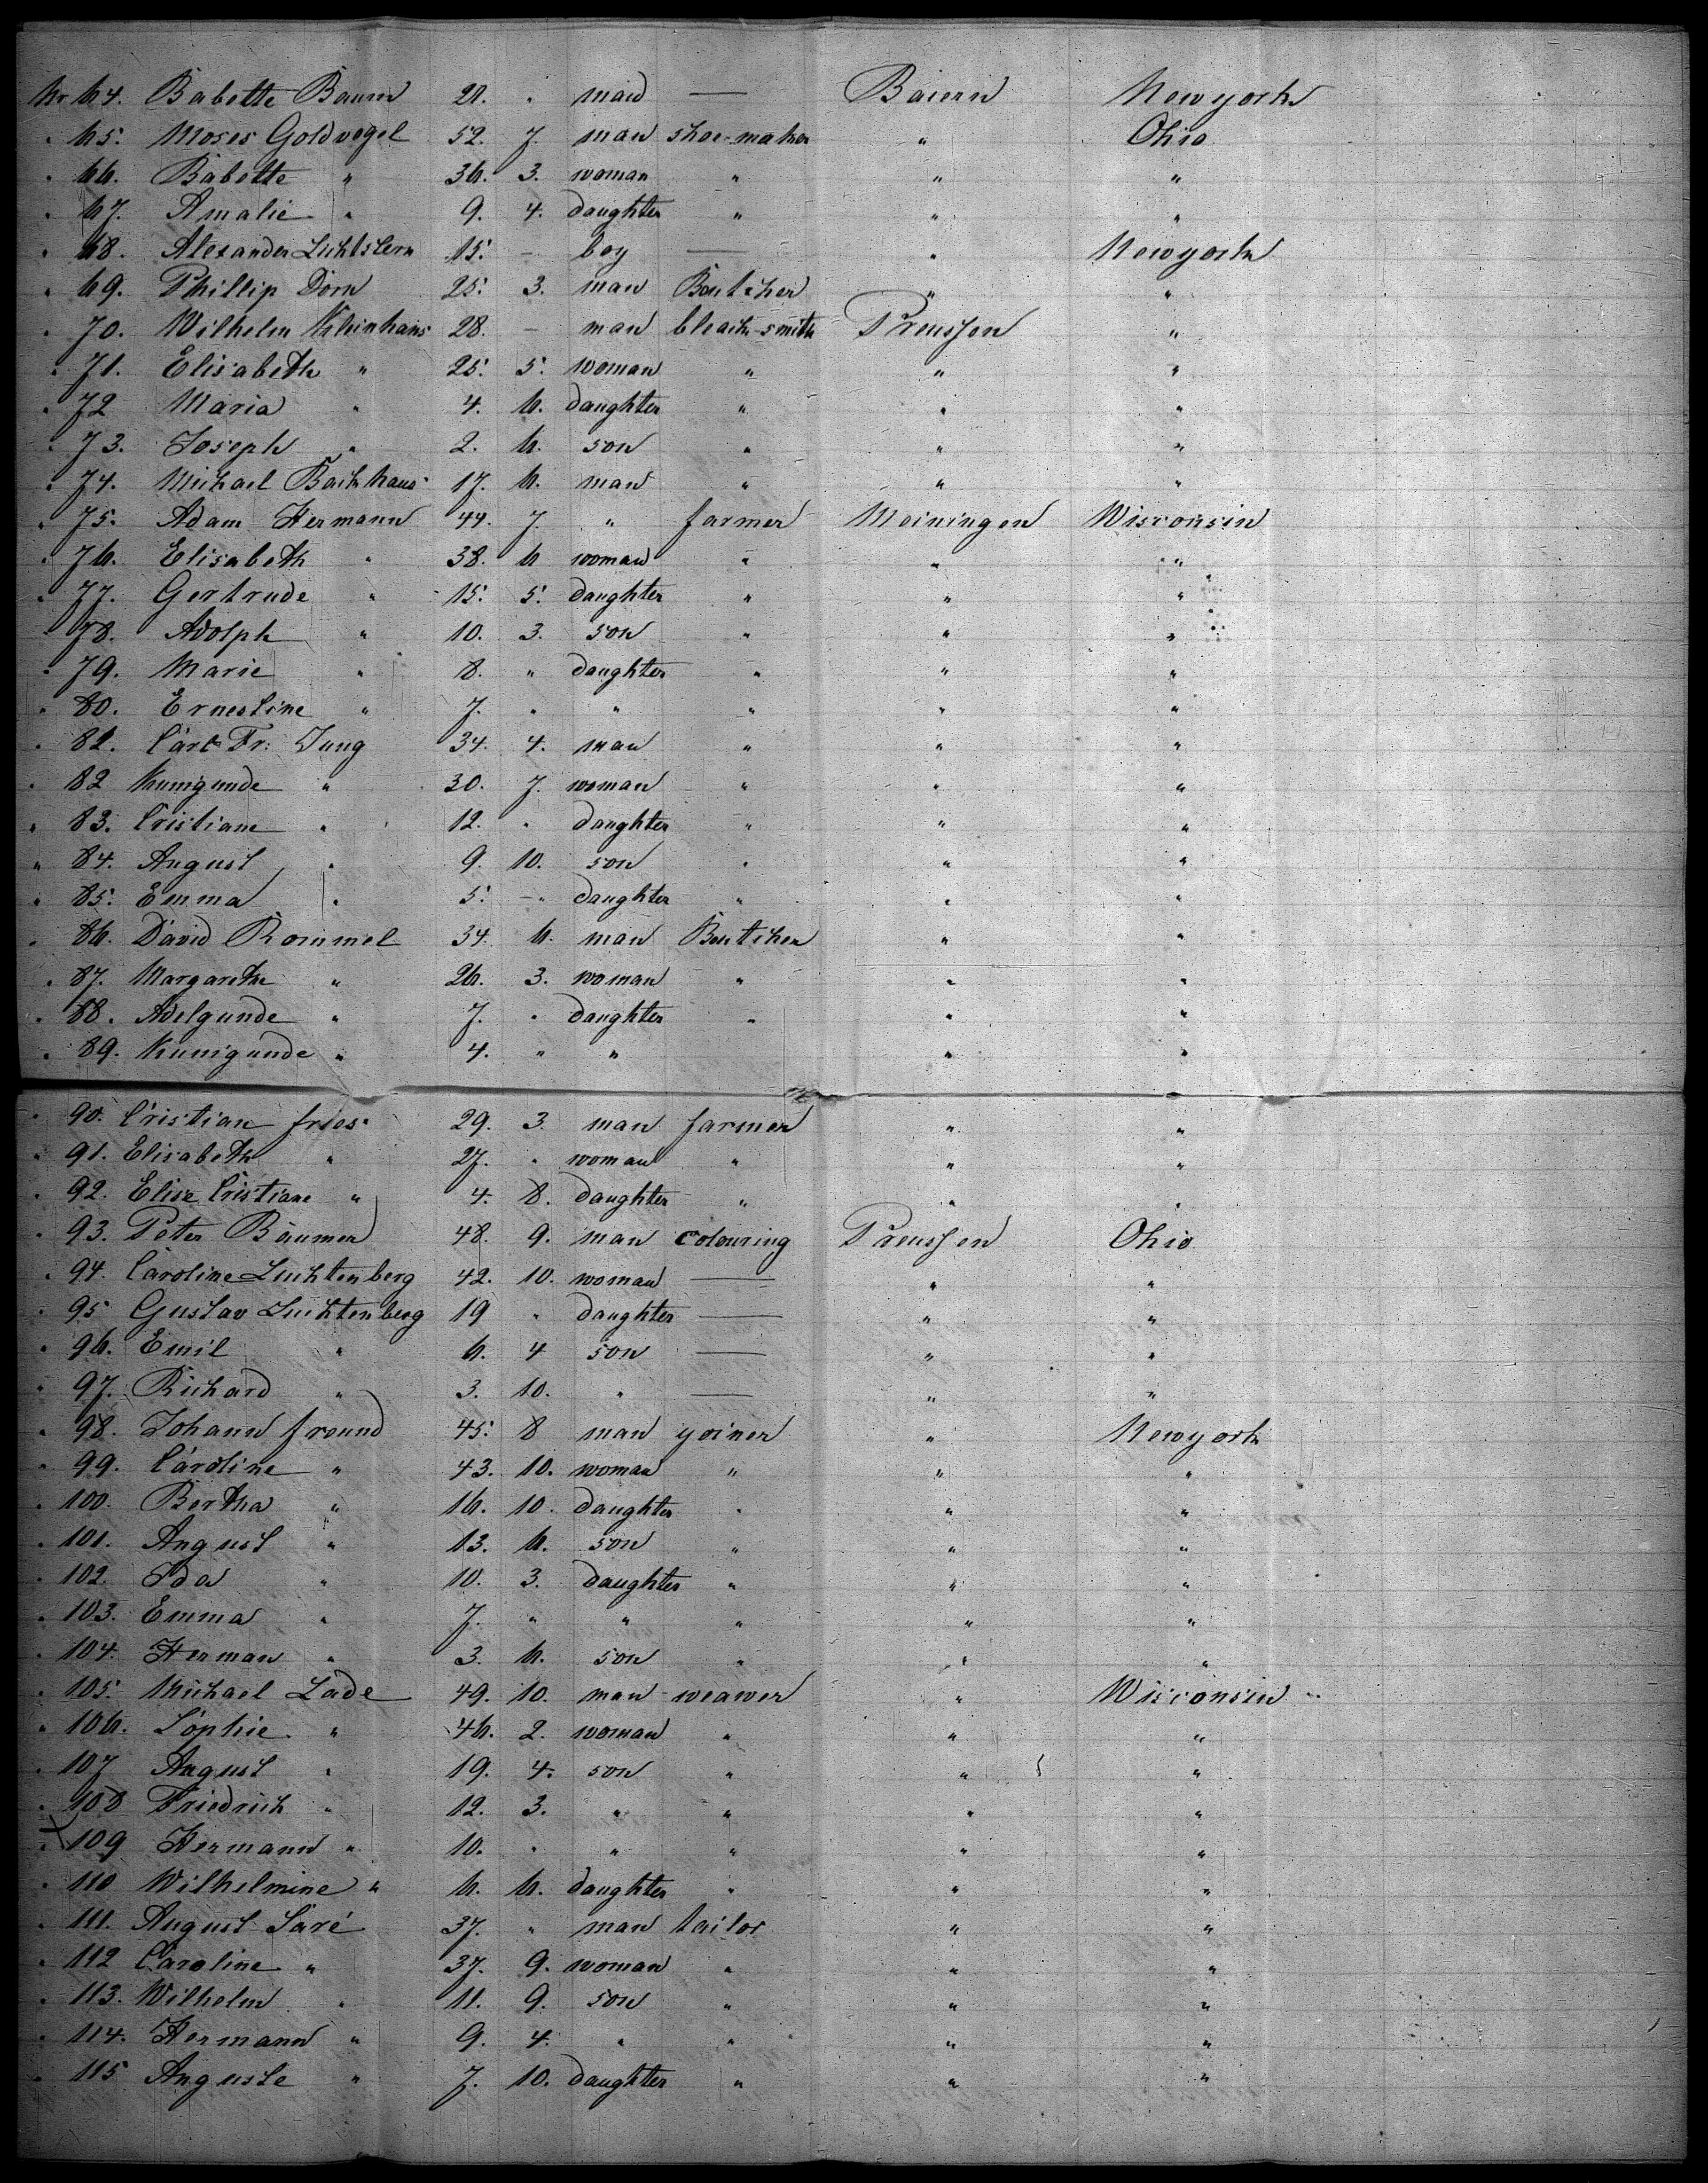 Nr 64. Babette Baum 21. " maid — Baiern Newyork
" 65. Moses Goldvogel 52. 7. man shoe-maker " Ohio
" 66. Babette " 36. 3. woman " " "
" 67. Amalie " 9. 4. daughter " " "
" 68. Alexander Lichtstern 15. – boy — " Newyork
" 69. Phillip Dorn 25. 3. man Boutcher " "
" 70. Wilhelm Kleinhans 28. – man black-smith Preussen "
" 71. Elisabeth " 25. 5. woman " " "
" 72 Maria " 4. 6. daughter " " "
" 73. Joseph " 2. 6. son " " "
" 74. Michael Backhaus 17. 6. man " " "
" 75. Adam Hermann 44. 7. " farmer Meiningen Wisconsin
" 76. Elisabeth " 38. 6 woman " " "
" 77. Gertrude " 15. 5. daughter " " "
" 78. Adolph " 10. 3. son " " "
" 79. Marie " 8. " daughter " " "
" 80. Ernestine " 7. " " " " "
" 81. Carl Fr: Jung 34. 4. man " " "
" 82 Kunigunde " 30. 7. woman " " "
" 83. Cristiane " 12. " daughter " " "
" 84. August " 9. 10. son " " "
" 85. Emma " 5. –" daughter " " "
" 86. David Rommel 34. 6. man Boutcher " "
" 87. Margarethe " 26. 3. woman " " "
" 88. Adelgunde " 7. " daughter " " "
" 89. Kunigunde " 4. " " " "
" 90. Cristian fries 29. 3. man farmer " "
" 91. Elisabeth " 27. " woman " " "
" 92. Elise Cristiane " 4. 8. daughter " " "
" 93. Peter Bäumer 48. 9. man colouring Preussen Ohio
" 94. Caroline Luchtenberg 42. 10. woman — " "
" 95 Gustav Luchtenberg 19 " daughter — " "
" 96. Emil " 6. 4 son — " "
" 97. Richard " 3. 10. " — " "
" 98. Johann freund 45. 8 man yoiner " Newyork
" 99. Caroline " 43. 10. woman " " "
" 100. Bertha " 16. 10. daughter " " "
" 101. August " 13. 6. son " " "
" 102. Ida " 10. 3. daughter " " "
" 103. Emma " 7. " " " " "
" 104. Herman " 3. 6. son " " "
" 105. Michael Lade 49. 10. man weawer " Wisconsin
" 106. Sophie " 46. 2. woman " " "
" 107 August " 19. 4. son " " "
" 108 Friedrich " 12. 3. " " " "
" 109 Hermann " 10. " " " " "
" 110 Wilhelmine " 6. 6. daughter " " "
" 111. August Saré 37. " man tailor " "
" 112 Caroline " 37. 9. woman " " "
" 113. Wilhelm " 11. 9. son " " "
" 114. Hermann " 9. 4. " " " "
" 115 Auguste " 7. 10. daughter " " "